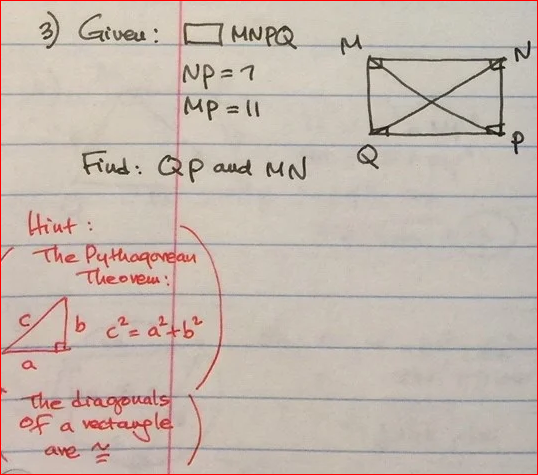 3) Given: ▭ MNPQ
NP = 7
MP = 11
M
N
Q
P
Find: QP and MN
Hint:
The Pythagorean
Theorem:
c
b
a
c² = a² + b²
The diagonals
of a rectangle
are ≅